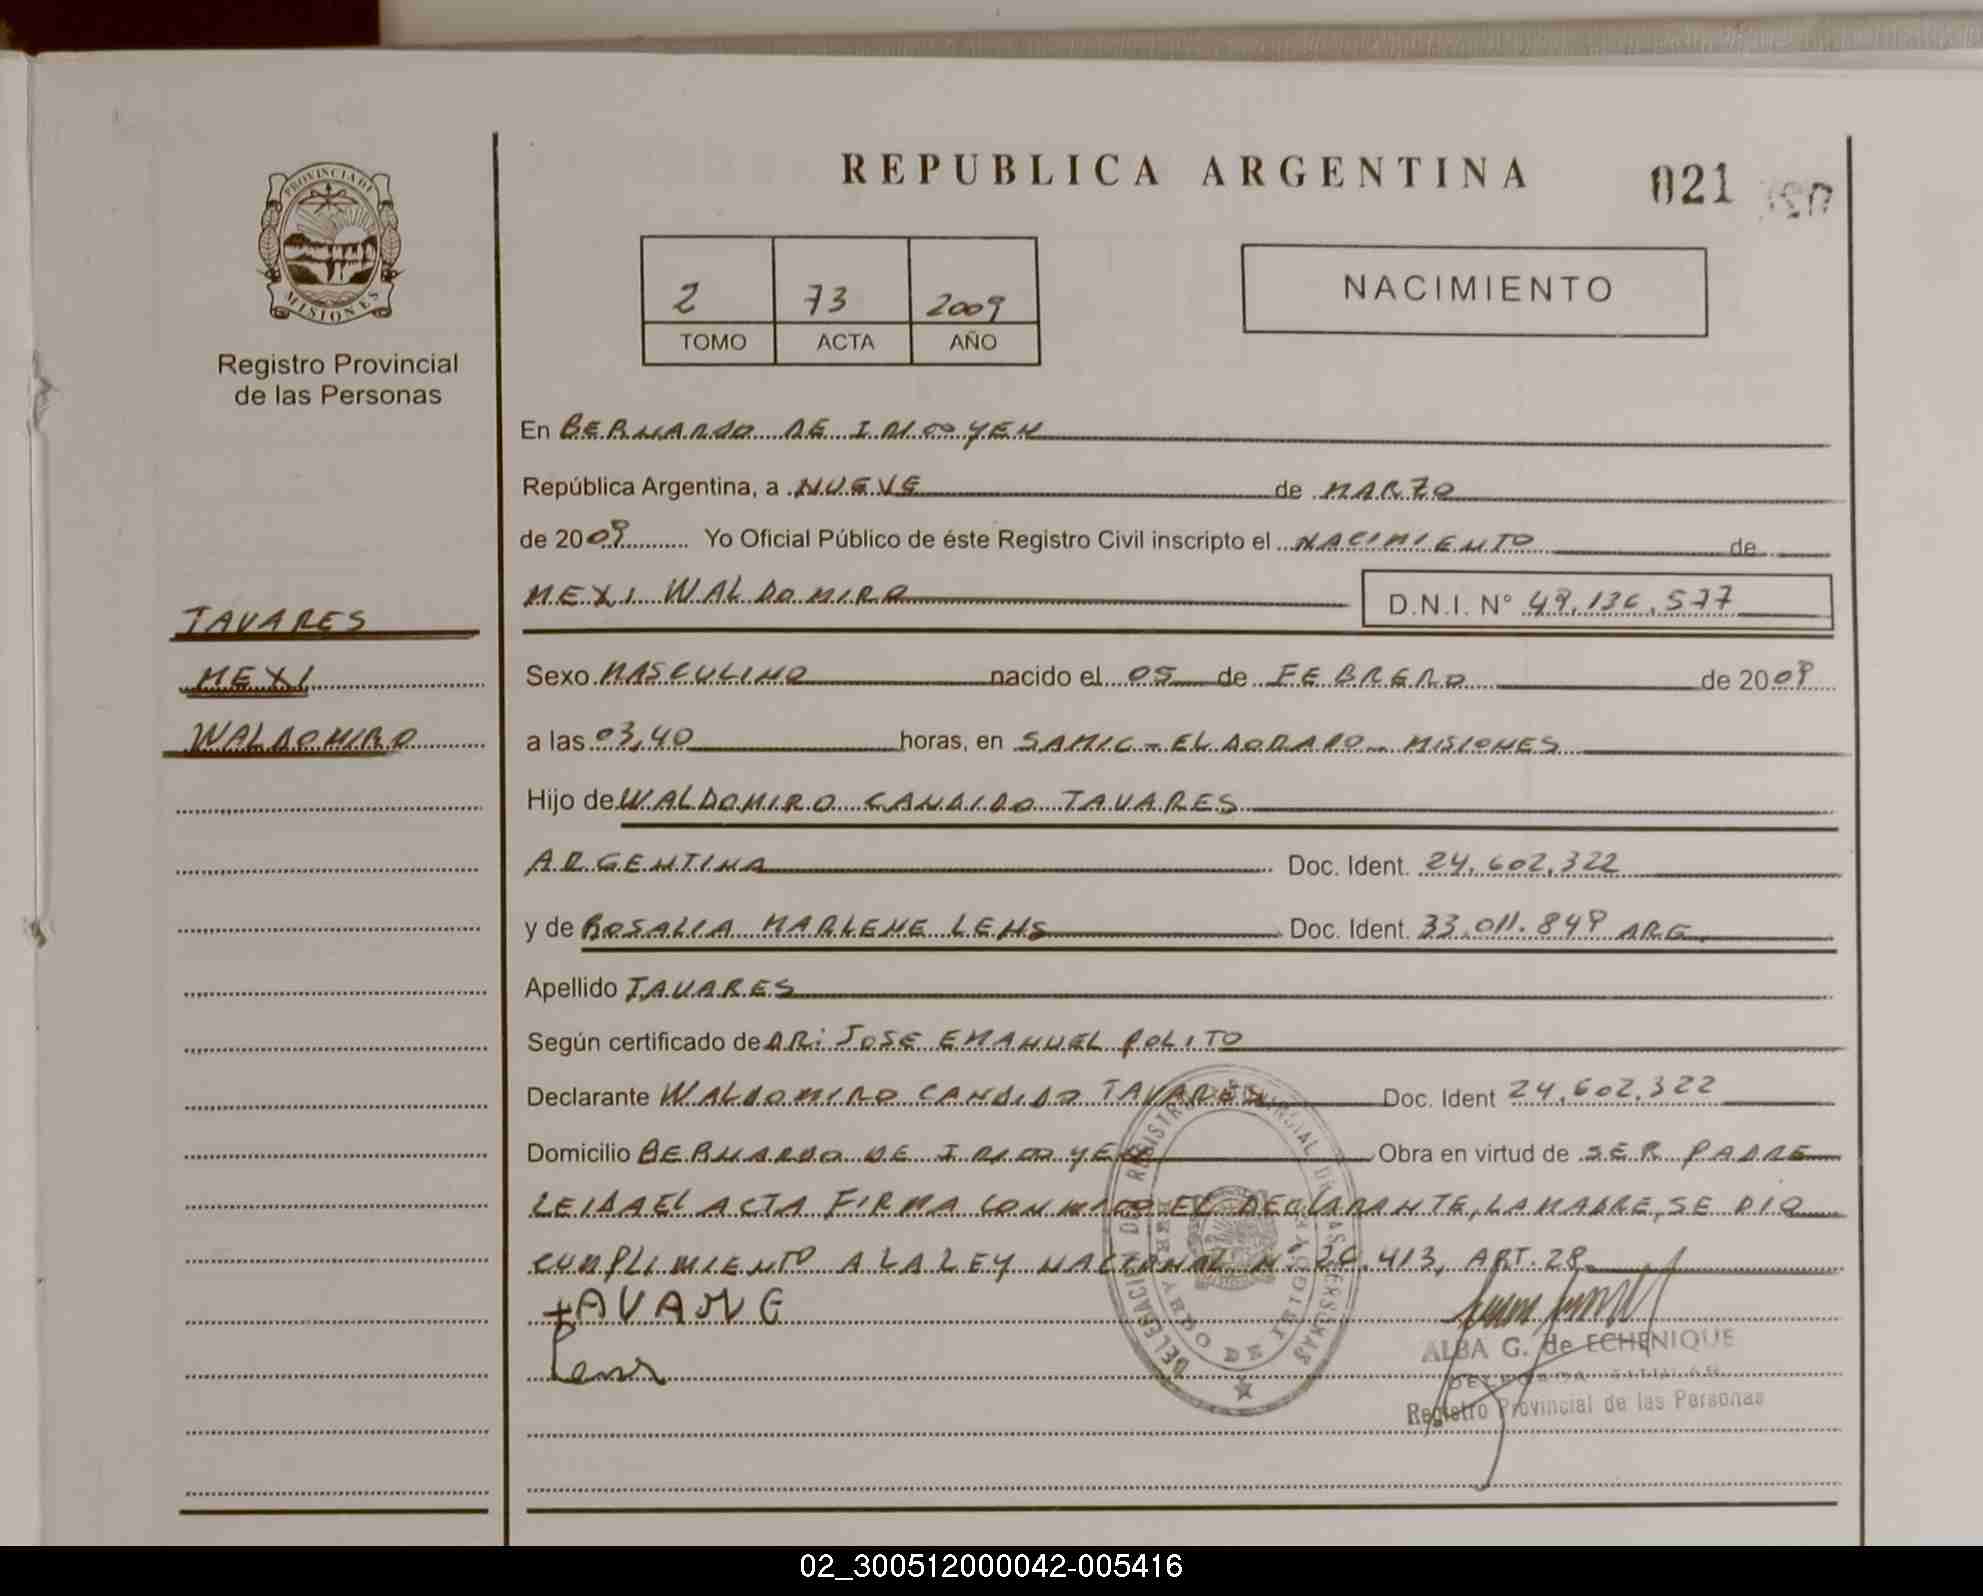 REPUBLICA ARGENTINA
021
PROVINCIA DE
MISIONES
Registro Provincial
de las Personas
2 73 2009
TOMO ACTA AÑO
NACIMIENTO
En BERNARDO DE IRIGOYEN
República Argentina, a NUEVE de MARZO
de 2009 Yo Oficial Público de éste Registro Civil inscripto el NACIMIENTO de
MEXI WALDOMIRO D.N.I. N° 49.136.577
TAVARES
MEXI
WALDOMIRO
Sexo MASCULINO nacido el 05 de FEBRERO de 2009
a las 03,40 horas, en SAMIC - ELDORADO - MISIONES
Hijo de WALDOMIRO CANDIDO TAVARES
ARGENTINA Doc. Ident. 24.602.322
y de ROSALIA MARLENE LENS Doc. Ident. 33.011.849 ARG.
Apellido TAVARES
Según certificado de DR: JOSE EMANUEL POLITO
Declarante WALDOMIRO CANDIDO TAVARES Doc. Ident 24.602.322
Domicilio BERNARDO DE IRIGOYEN Obra en virtud de SER PADRE
LEIDA EL ACTA FIRMA CONMIGO EL DECLARANTE, LA MADRE, SE DIO
CUMPLIMIENTO A LA LEY NACIONAL N° 26.413, ART. 28.
tAVARE
Lens
ALBA G. de ECHENIQUE
DELEGADA TITULAR
Registro Provincial de las Personas
02_300512000042-005416